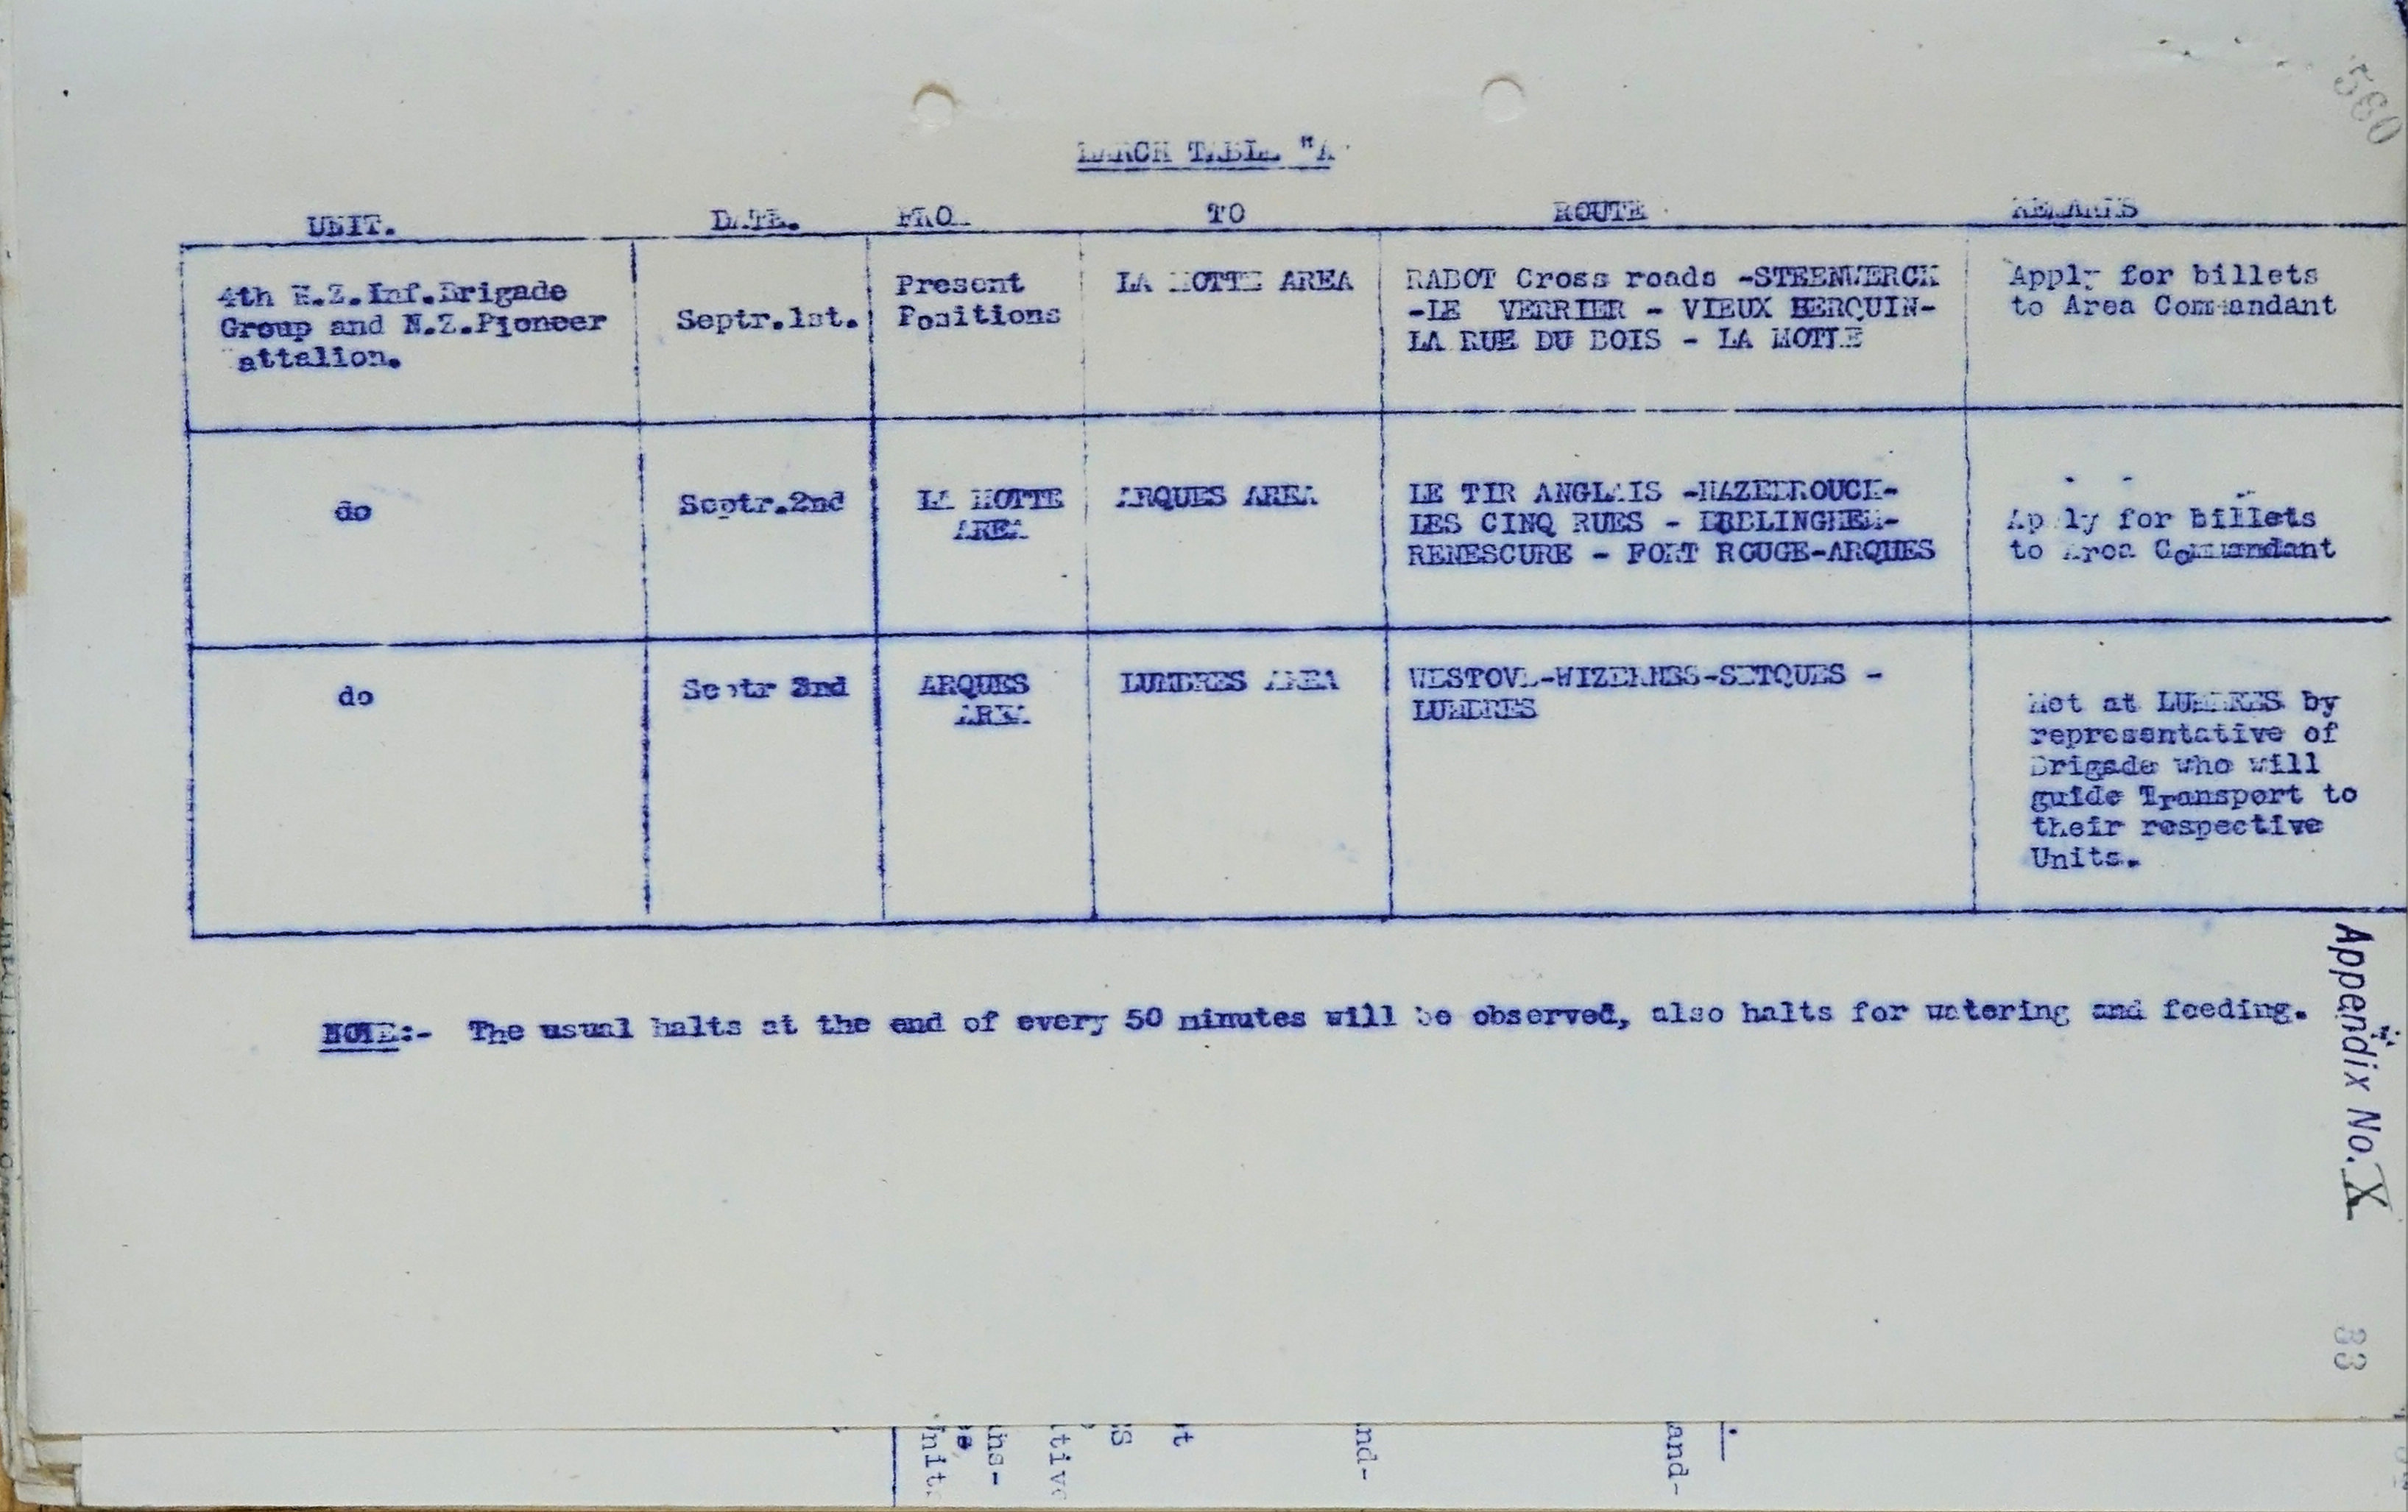 560
MARCH TABLE "A"
UNIT. DATE. FROM TO ROUTE REMARKS
4th N.Z.Inf.Brigade
Group and N.Z.Pioneer
Battalion.
Septr.1st.
Present
Positions
LA MOTTE AREA
RABOT Cross roads -STEENWERCK
-LE VERRIER - VIEUX BERQUIN-
LA RUE DU BOIS - LA MOTTE
Apply for billets
to Area Commandant
do
Septr.2nd
LA MOTTE
AREA
ARQUES AREA
LE TIR ANGLAIS -HAZEBROUCK-
LES CINQ RUES - EBBLINGHEM-
RENESCURE - FORT ROUGE-ARQUES
Apply for billets
to Area Commandant
do
Septr 3rd
ARQUES
AREA
LUMBRES AREA
WESTOVE-WIZERNES-SETQUES -
LUMBRES
Met at LUMBRES by
representative of
Brigade who will
guide Transport to
their respective
Units.
NOTE:- The usual halts at the end of every 50 minutes will be observed, also halts for watering and feeding.
Appendix No. X
33